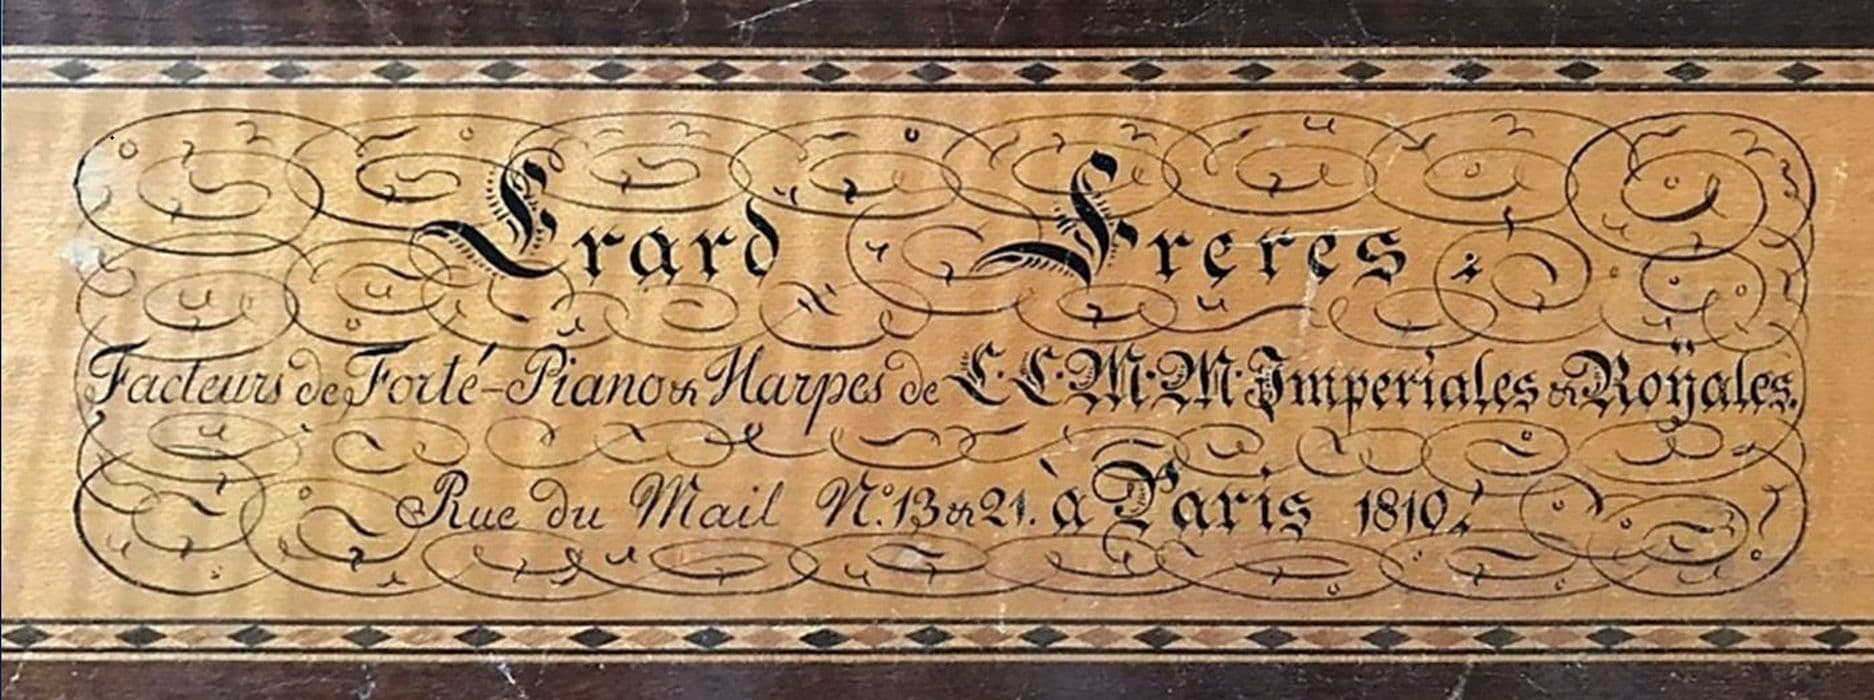 Erard Freres.
Facteurs de Forté-Piano & Harpes de L.L.M.M. Imperiales & Roÿales.
Rue du Mail N.° 13 & 21. à Paris 1810.